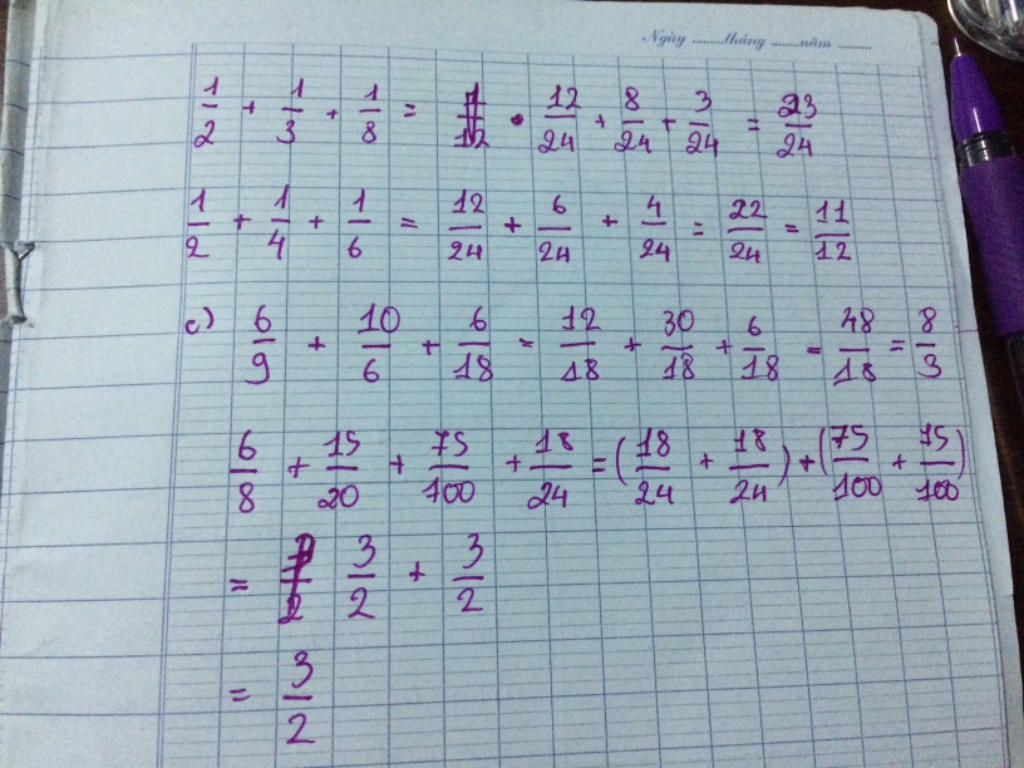 Ngày ........tháng ......năm ........
1/2 + 1/3 + 1/8 = 12/24 + 8/24 + 3/24 = 23/24
1/2 + 1/4 + 1/6 = 12/24 + 6/24 + 4/24 = 22/24 = 11/12
c) 6/9 + 10/6 + 6/18 = 12/18 + 30/18 + 6/18 = 48/18 = 8/3
6/8 + 15/20 + 75/100 + 18/24 = (18/24 + 18/24) + (75/100 + 75/100)
= 3/2 + 3/2
= 3/2